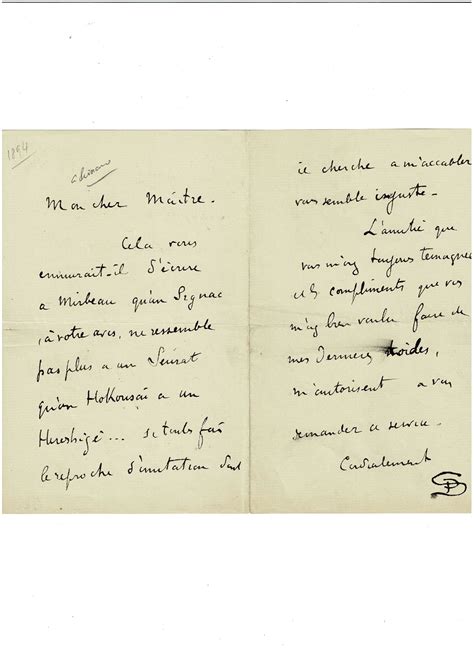 1894
Mon cher Maître.
Cela vous
ennuirait-il d'écrire
a Mirbeau qu'un Signac
, à votre avis, ne ressemble
pas plus a un Seurat
qu'un Hokousaï a un
Hiroshigé... si toutefois
le reproche d'imitation dont
il cherche a m'accabler
vous semble injuste.
L'amitié que
vous m'avez toujours temoignée
et les compliments que vous
m'avez bien voulu faire de
mes dernieres toiles,
m'autorisent a vous
demander ce service.
Cordialement